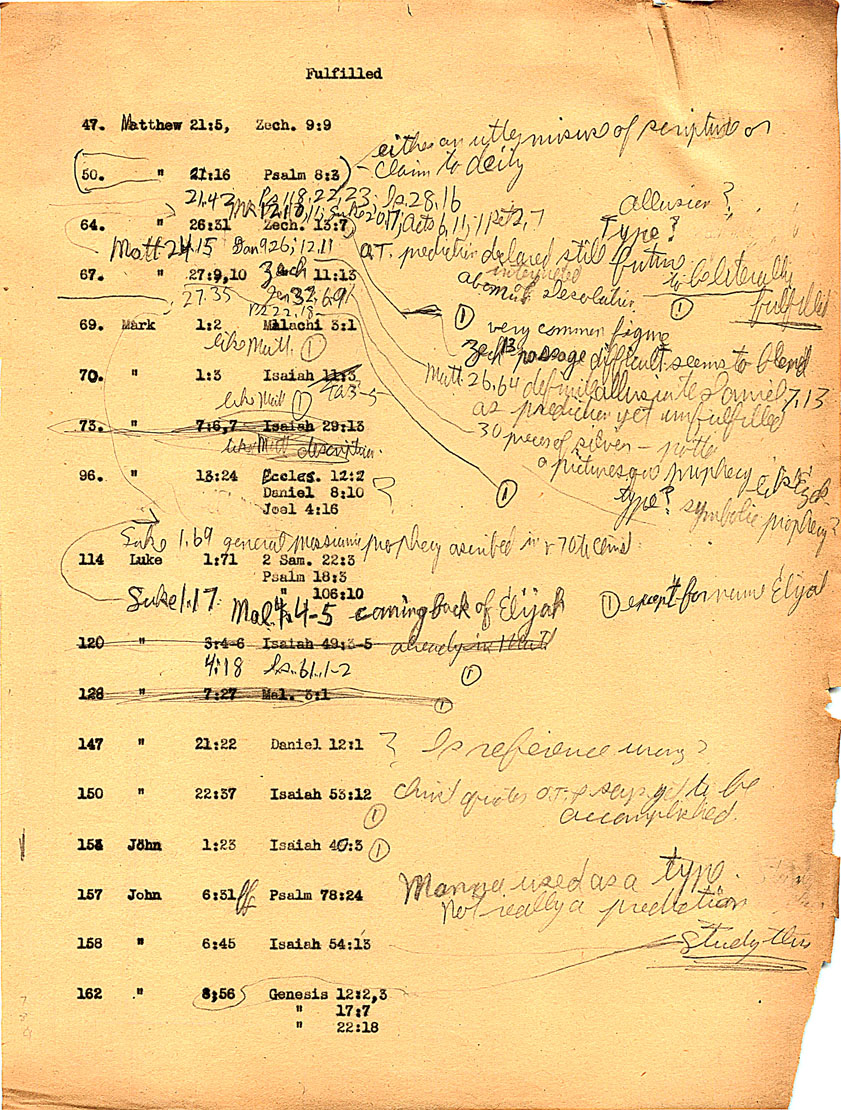 Fulfilled
47. Matthew 21:5, Zech. 9:9
either an utter misuse of scripture or
claim to deity
50. " 21:16 Psalm 8:3
21.42 Ps 118,22,23; Is. 28.16
MK 12.10,11; Luke 20.17; Acts 4,11; 1 Pet 2,7
allusion?
64. " 26:31 Zech. 13:7
Type?
Matt 24.15 Dan 9 26; 12.11 O.T. prediction declared still future
to be literally
fulfilled
67. " 27:9,10 Zech 11:13
interpreted
abomin. of Desolation
27.35
Ps 22.18
69. Mark 1:2 Malachi 3:1
1 very common figure
like Matt. 1
Zech 13 passage difficult seems to blend
70. " 1:3 Isaiah 11:3
40.3-5
Matt. 26.64 definite allusion to Daniel 7.13
like Matt 1
as prediction yet unfulfilled
73. " 7:6,7 Isaiah 29:13
30 pieces of silver — potter
like Matt description.
a picturesque prophecy
96. " 13:24 Eccles. 12:2
Daniel 8:10
Joel 4:16
?
1
type? symbolic prophecy?
Luke 1.69 general messianic prophecy ascribed in v 70 to
114 Luke 1:71 2 Sam. 22:3
Psalm 18:3
" 106:10
Luke 1.17 Mal 4.4-5 coming back of Elijah 1 except for name Elijah
120 " 3:4-6 Isaiah 49:3-5 already in Matt
4:18 Is. 61.1-2 1
126 " 7:27 Mal. 3:1 1
147 " 21:22 Daniel 12:1 ? Is reference wrong?
150 " 22:37 Isaiah 53:12 Christ quotes O.T. & says yet to be
accomplished.
1
153 John 1:23 Isaiah 40:3 1
157 John 6:31ff Psalm 78:24 Manna used as a type.
Not really a prediction
158 " 6:45 Isaiah 54:13 Study this
162 " 8:56 Genesis 12:2,3
" 17:7
" 22:18